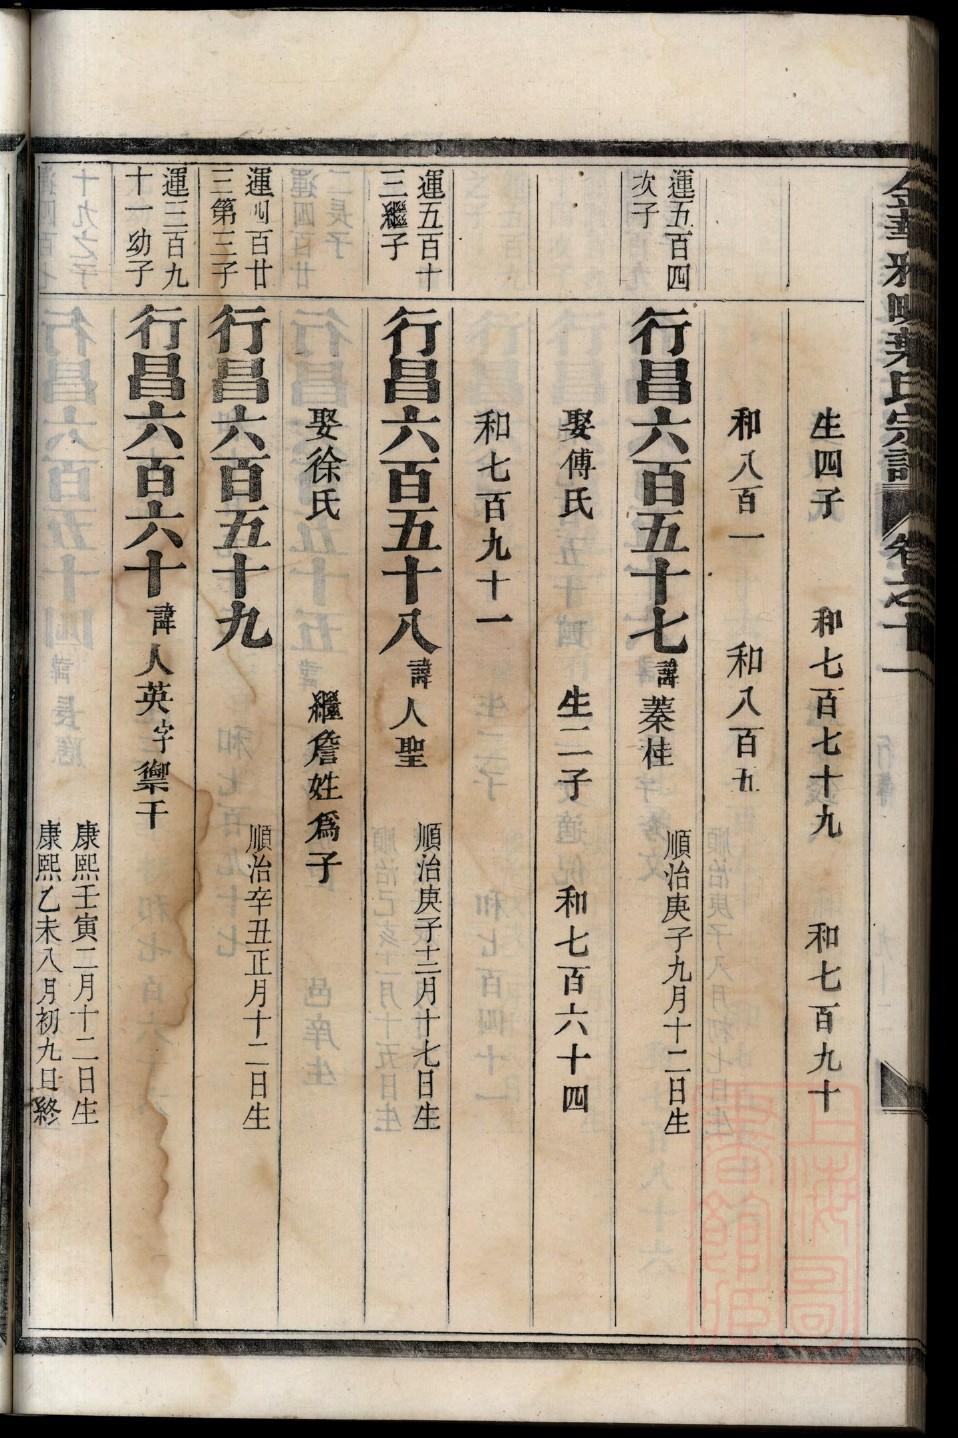 金華雅畈葉氏宗譜 卷之十一
生四子 和七百七十九 和七百九十
和八百一 和八百五
運五百四
次子
行昌六百五十七 諱蓁桂 順治庚子九月十二日生
娶傅氏 生二子 和七百六十四
和七百九十一
運五百十
三繼子
行昌六百五十八 諱人聖 順治庚子十二月十七日生
娶徐氏 繼詹姓為子
運四百廿
三第三子
行昌六百五十九 順治辛丑正月十二日生
運三百九
十一幼子
行昌六百六十 諱人英字禦干 康熙壬寅二月十二日生
康熙乙未八月初九日終
上海圖書館藏